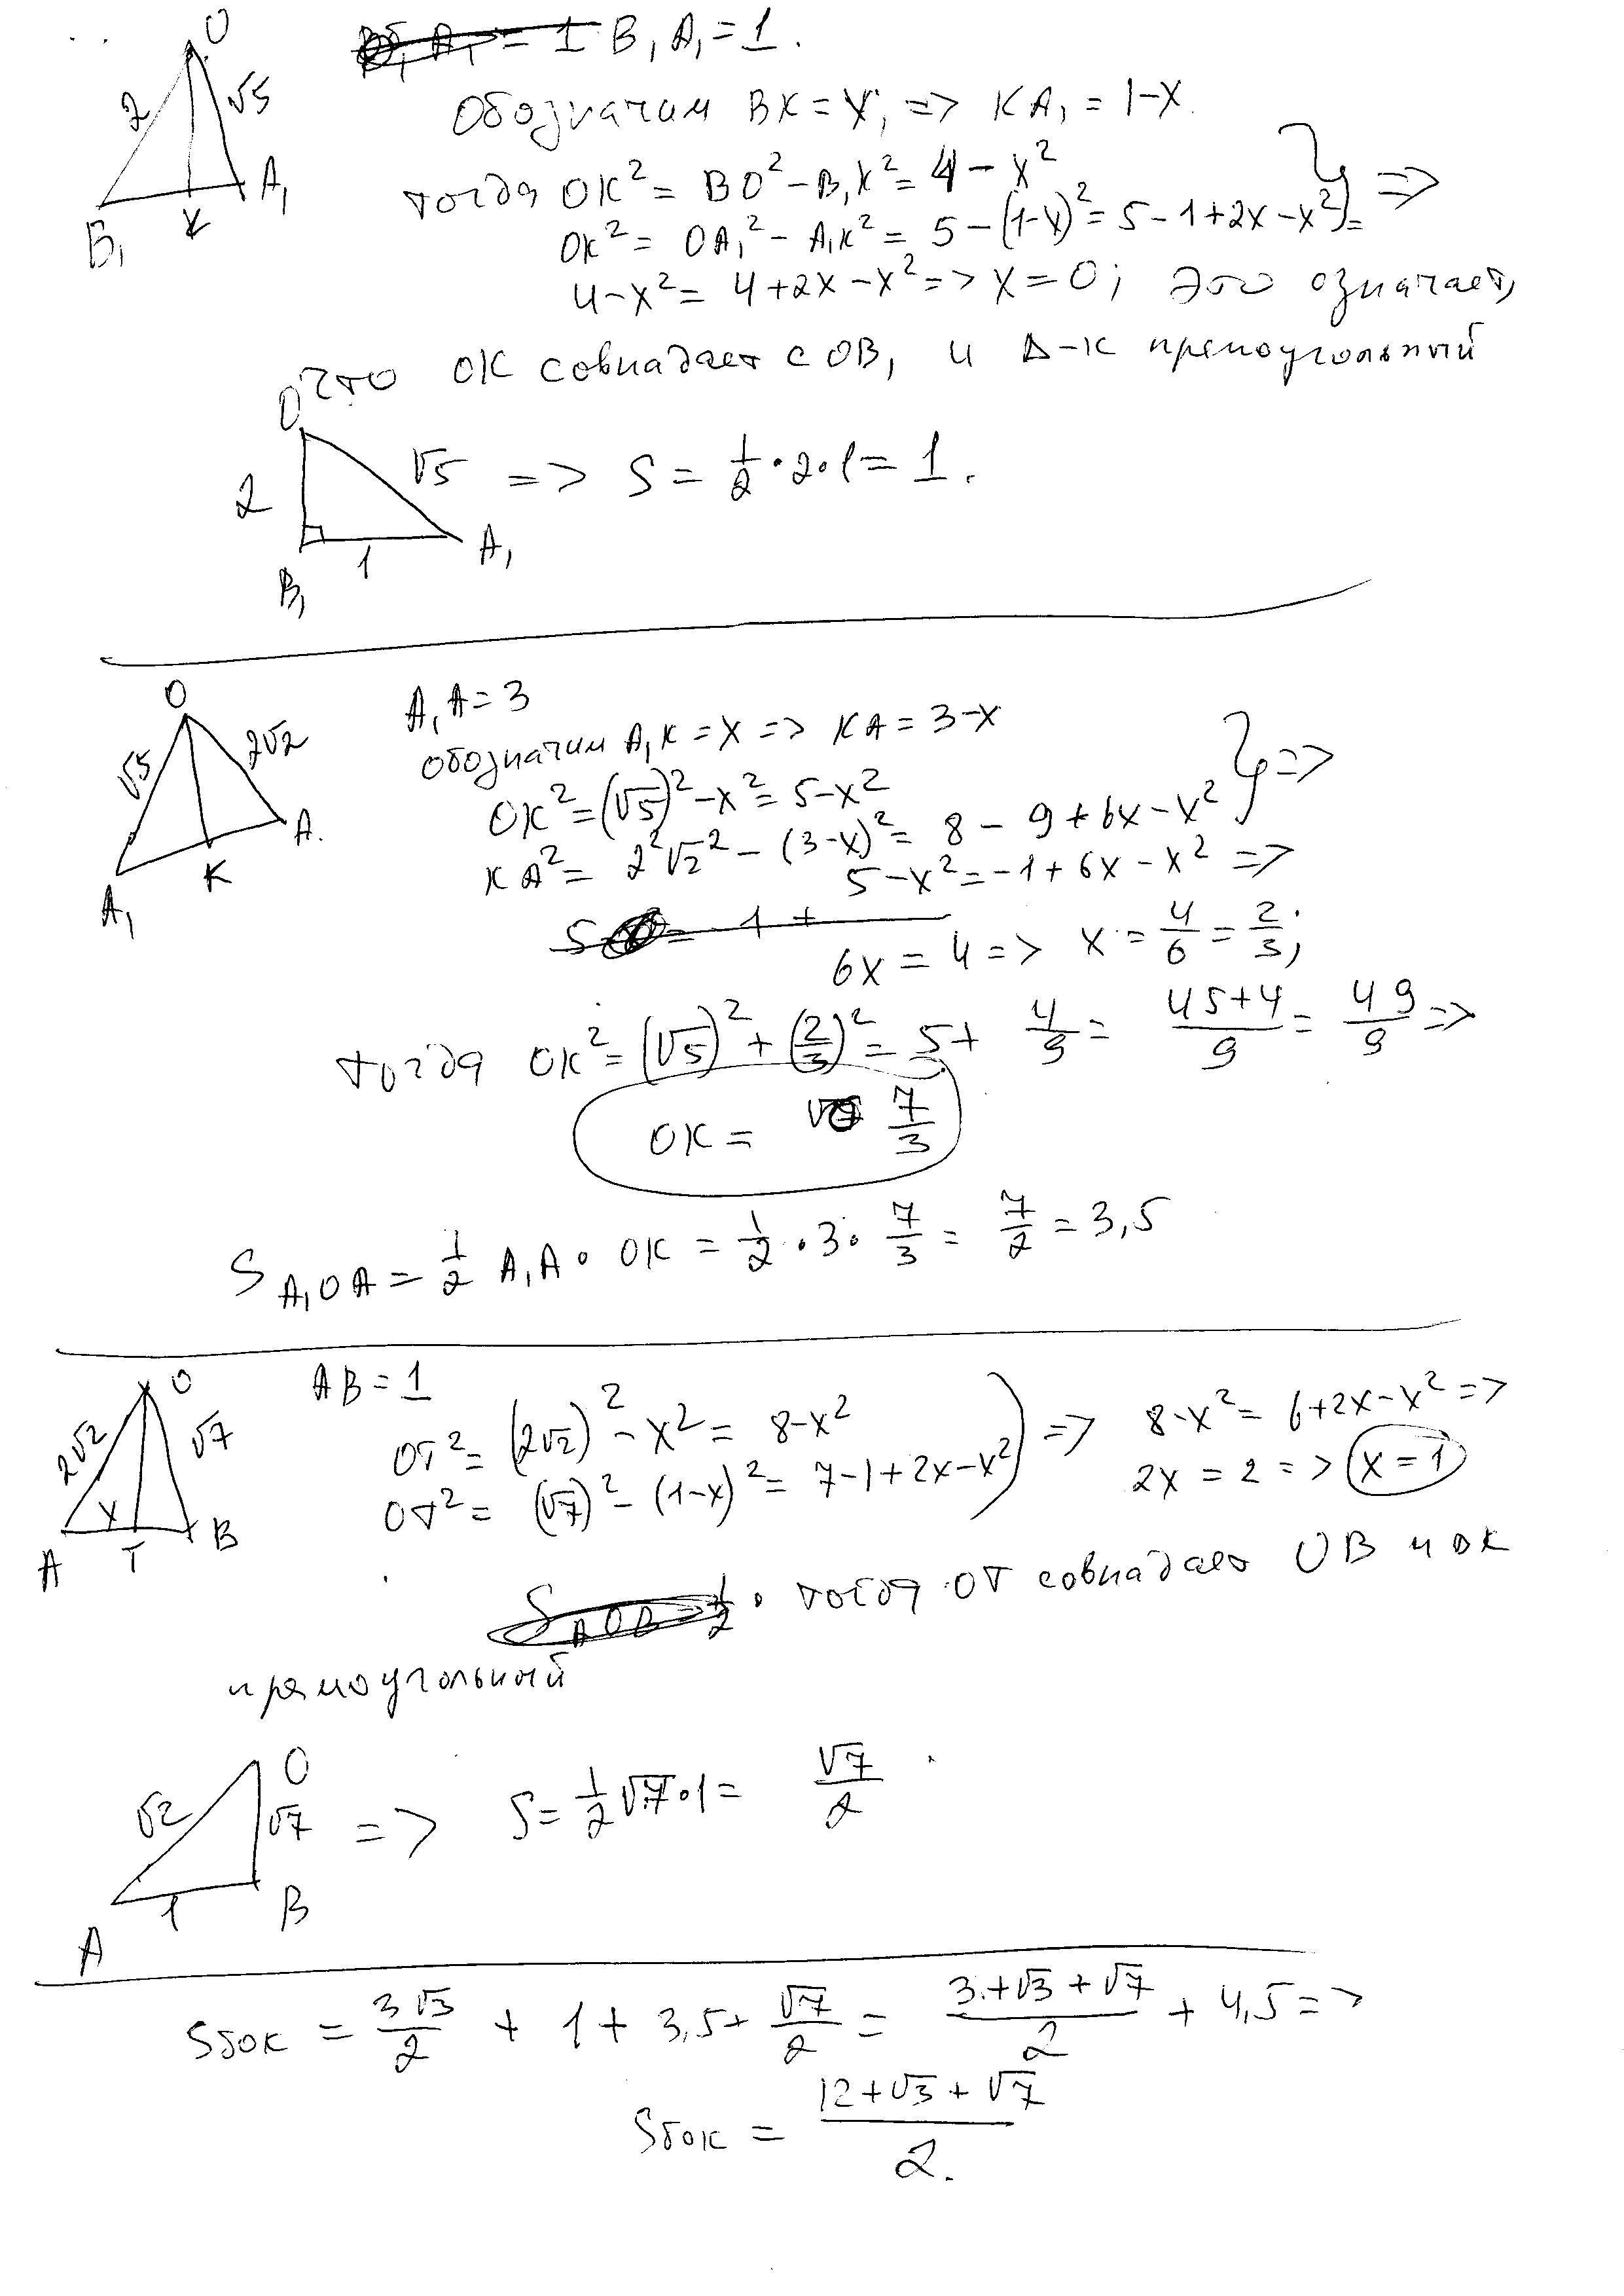 O
B₁A₁ = 1 B₁A₁ = 1.
2 √5
Обозначим BK = x, => KA₁ = 1-x.
B₁ K A₁
тогда OK² = BO² - B₁K² = 4 - x²
OK² = OA₁² - A₁K² = 5 - (1-x)² = 5 - 1 + 2x - x² } =>
4 - x² = 4 + 2x - x² => x = 0; это означает,
что OK совпадает с OB, и Δ-к прямоугольный
O
2 √5 => S = 1/2 · 2 · 1 = 1.
1
B₁ A₁
O
A₁A = 3
√5 2√2
обозначим A₁K = x => KA = 3-x
OK² = (√5)² - x² = 5 - x²
KA² = 2²√2² - (3-x)² = 8 - 9 + 6x - x² } =>
A₁ K A.
5 - x² = -1 + 6x - x² =>
6x = 4 => x = 4/6 = 2/3;
тогда OK² = (√5)² + (2/3)² = 5 + 4/9 = (45+4)/9 = 49/9 =>
OK = 7/3
S A₁OA = 1/2 A₁A · OK = 1/2 · 3 · 7/3 = 7/2 = 3,5
O
AB = 1
2√2 √7
OT² = (2√2)² - x² = 8 - x²
OT² = (√7)² - (1-x)² = 7 - 1 + 2x - x² ) => 8 - x² = 6 + 2x - x² =>
2x = 2 => x = 1
x
A T B
S AOB = 1/2 · тогда OT совпадает OB и Δк
прямоугольный
O
√2 √7 => S = 1/2 √7 · 1 = √7/2.
1
A B
Sбок = 3√3/2 + 1 + 3,5 + √7/2 = (3.+√3+√7)/2 + 4,5 =>
Sбок = (12+√3+√7)/2.